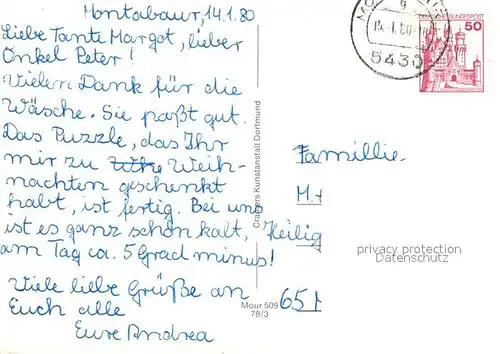 Montabaur, 14.1.80
Liebe Tante Margot, lieber
Onkel Peter!
Vielen Dank für die
Wäsche. Sie paßt gut.
Das Puzzle, das Ihr
mir zu Weih-
nachten geschenkt
habt, ist fertig. Bei uns
ist es ganz schön kalt,
am Tag ca. 5 Grad minus!
Viele liebe Grüße an
Euch alle
Eure Andrea
Cramers Kunstanstalt Dortmund
Mour 509
78/3
5430
DEUTSCHE BUNDESPOST
50
Familie
M.+
Heilig
651
privacy protection
Datenschutz